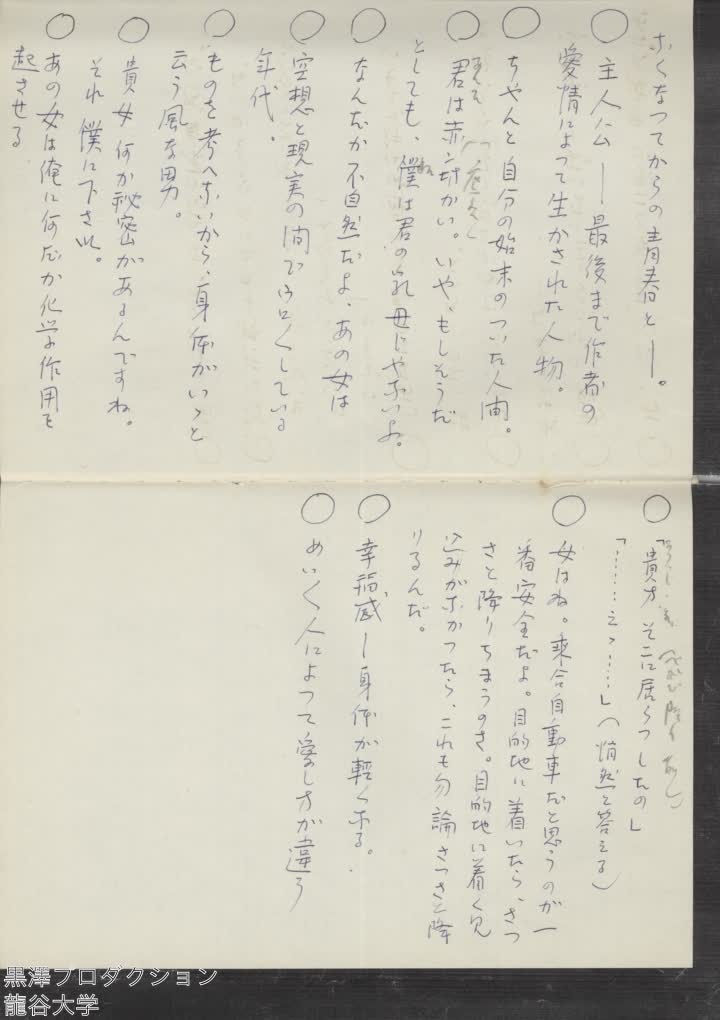 なくなつてからの青春と―。
主人公―最後まで作者の
愛情によつて生かされた人物。
ちやんと自分の始末のついた人間。
君は赤ン坊かい。いや、もしそうだ
としても、僕は君の乳母じやないよ。
なんだか不自然だよ、あの女は
空想と現実の間でウロウロしている
年代。
ものを考へないから、身体がいゝと
云う風な男。
貴女何か秘密があるんですね。
それ僕に下さい。
あの女は俺に何だか化学作用を
起させる
「貴方そこに居らつしたの」
「……えゝ……」(悄然と答える)
女はね。乗合自動車だと思うのが一
番安全だよ。目的地に着いたら、さつ
さと降りちまうのさ。目的地に着く見
込みがなかつたら、これも勿論さつさと降
りるんだ。
幸福感―身体が軽くなる。
めいめい人によつて愛し方が違う
黒澤プロダクション
龍谷大学